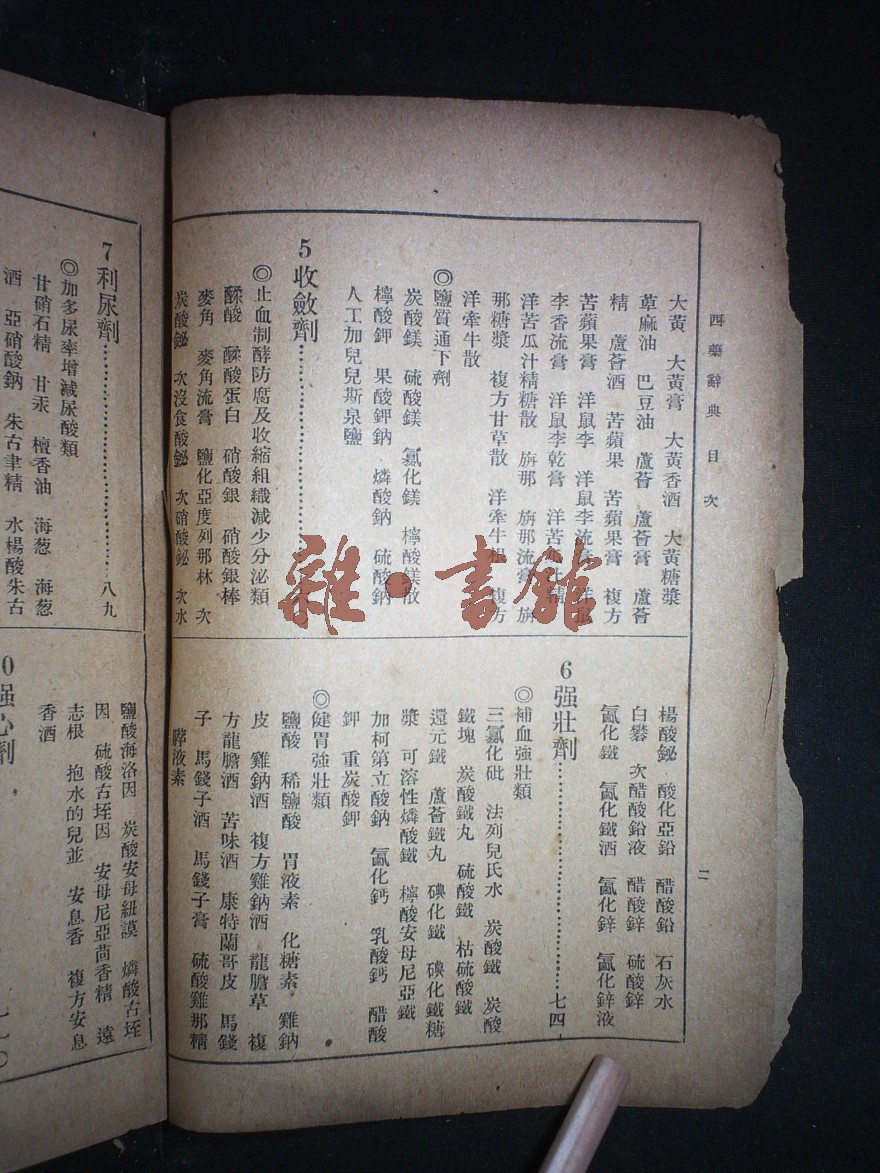 西藥辭典 目次
二
大黃 大黃膏 大黃香酒 大黃糖漿
草麻油 巴豆油 蘆薈 蘆薈膏 蘆薈
精 蘆薈酒 苦蘋果 苦蘋果膏 複方
苦蘋果膏 洋鼠李 洋鼠李流膏
李香流膏 洋鼠李乾膏 洋苦
洋苦瓜汁精糖散 旃那 旃那流膏 旃
那糖漿 複方甘草散 洋牽牛根 複方
洋牽牛散
◎鹽質通下劑
炭酸鎂 硫酸鎂 氯化鎂 檸酸鎂散
檸酸鉀 果酸鉀鈉 燐酸鈉 硫酸鈉
人工加兒兒斯泉鹽
5 收斂劑
◎止血制酵防腐及收縮組織減少分泌類
鞣酸 鞣酸蛋白 硝酸銀 硝酸銀棒
麥角 麥角流膏 鹽化亞度列那林 次
炭酸鉍 次沒食酸鉍 次硝酸鉍 次水
楊酸鉍 酸化亞鉛 醋酸鉛 石灰水
白礬 次醋酸鉛液 醋酸鋅 硫酸鋅
氯化鐵 氯化鐵酒 氯化鋅 氯化鋅液
6 强壯劑 七四
◎補血強壯類
三氯化砒 法列兒氏水 炭酸鐵 炭酸
鐵塊 炭酸鐵丸 硫酸鐵 枯硫酸鐵
還元鐵 蘆薈鐵丸 碘化鐵 碘化鐵糖
漿 可溶性燐酸鐵 檸酸安母尼亞鐵
加柯第立酸鈉 氯化鈣 乳酸鈣 醋酸
鉀 重炭酸鉀
◎健胃強壯類
鹽酸 稀鹽酸 胃液素 化糖素 雞鈉
皮 雞鈉酒 複方雞鈉酒 龍膽草 複
方龍膽酒 苦味酒 康特蘭哥皮 馬錢
子 馬錢子酒 馬錢子膏 硫酸雞那精
膵液素
7 利尿劑 八九
◎加多尿率增減尿酸類
甘硝石精 甘汞 檀香油 海葱 海葱
酒 亞硝酸鈉 朱古聿精 水楊酸朱古
鹽酸海洛因 炭酸安母紐謨 燐酸古垤
因 硫酸古垤因 安母尼亞茴香精 遠
志根 抱水的兒並 安息香 複方安息
香酒
0 强心劑 一一〇
雜·書館